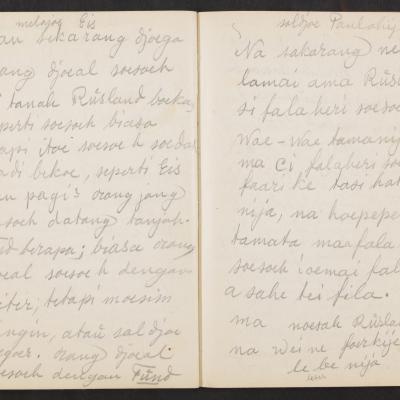 melajoe Eis
an sekarang djoega
ang djoeal soesoeh
i tanah Rŭsland boeka
eperti soesoeh biasa
tapi itoe soesoeh soedah
adi bekoe, seperti Eis
an pagi² orang jang
soesoeh datang tanjah.
berapa; biasa orang
oeal soesoeh dengan
iter; tetapi moesim
ingin, ataŭ saldjoe
orang djoeal
soesoeh dengan Fŭnd
soldjoe Paulohij
Na sakarang ne
lamai ama Rŭsl
si fala heri soesoe
Wae-Wae tamanij
ma Ci, falaheri soe
faari ke tasi hat
nija, na hoepepe
tamata maafala
soesoeh ioemai fal
a sahe tei fila.
ma noesah Rŭslan
na weine foerkije
le be nija